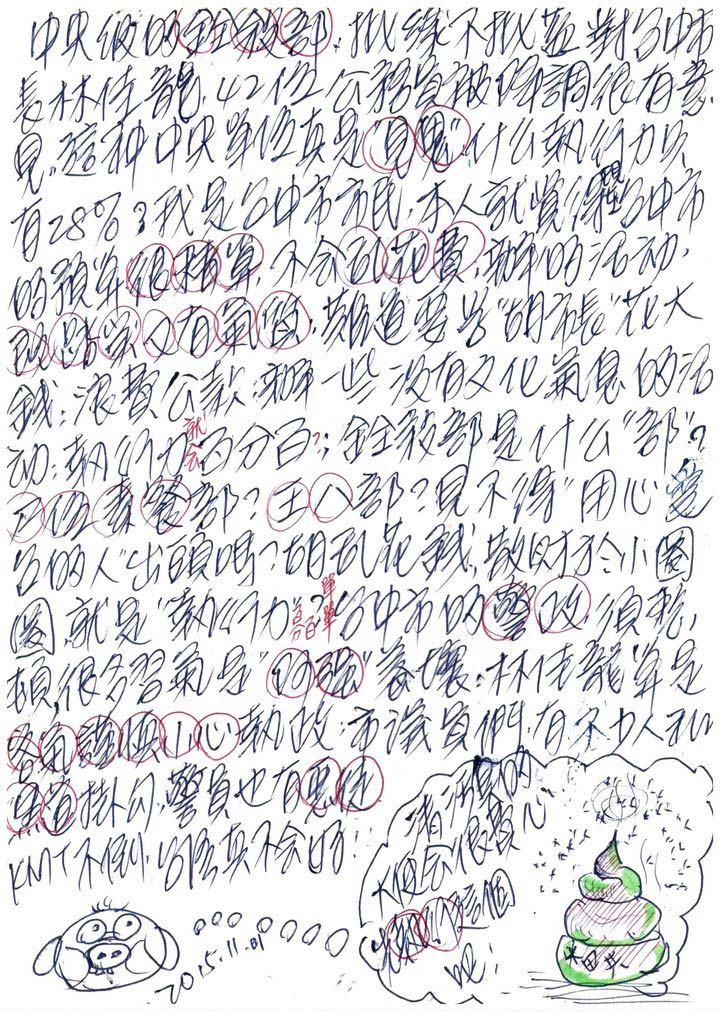 中央級的銓敘部，批綠不批藍，對台中市
長林佳龍，42位公務員被降調很有意
見，這种中央單位真是"見鬼"什么執行力只
有28%？我是台中市市民，本人就覺得現在台中市
的預算很精算，不会乱花費，辦的活动，
又有氣質，難道要學"胡市長"花大
錢；浪費公款；辦一些没有文化氣息的活
动；執行力就会百分百？；銓敘部是什么"部"？
部？王八部？見不得"用心愛
台的人"出頭嗎？胡乱花錢，散財於小圈
圈就是"執行力百分百"？單單台中市的警政，須整
頓，很多習氣是"胡強"養壞；林佳龍算是
客氣謹慎小心執政；市議員們，有不少人和
黑道掛勾，警員也有
KMT不倒，台灣真不会好！
清
大便会很費心
這個
呢！
2015.11.01